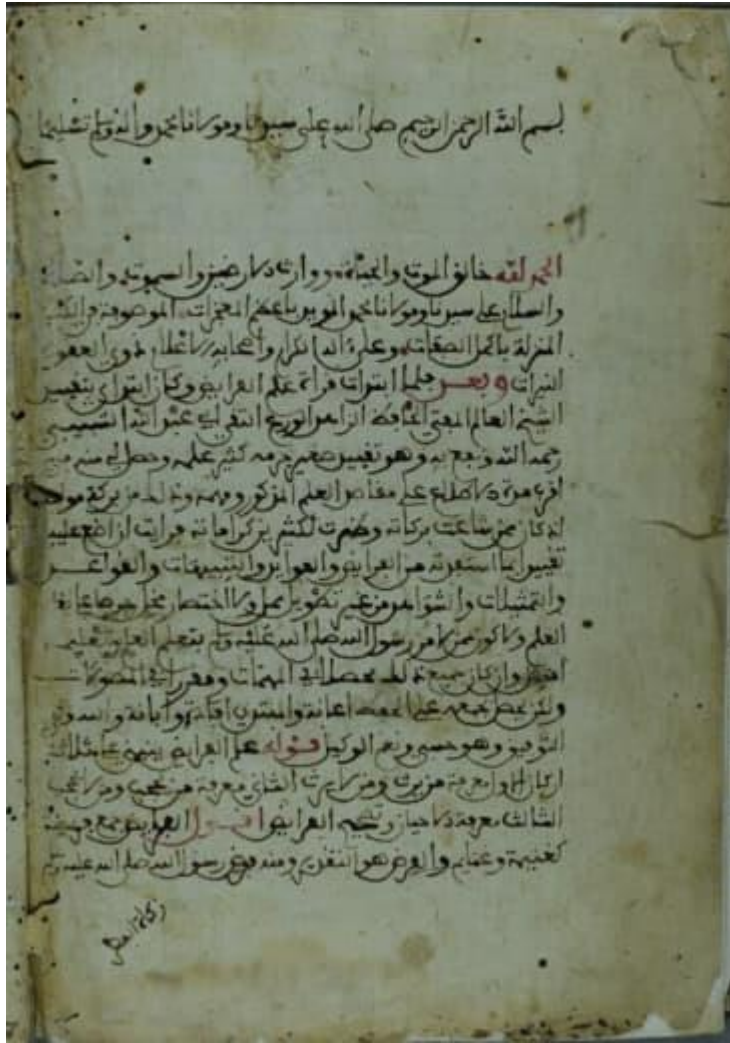 بسم الله الرحمن الرحيم صلى الله على سيدنا ومولانا محمد واله وسلم تسليما
الحمد لله خالق الموت والحياة ووارث الارضين والسموات والصلاة
والسلام على سيدنا ومولانا محمد المويد باعظم المعجزات الموصوف في الكتب
المنزلة باكمل الصفات وعلى اله الابرار واصحابه ذوي العقول
النيرات وبعد فلما ابتدات قراة علم الفرايض وكان ابتداي بتقييد
الشيخ العالم المفتي الحافظ الزاهد الورع التقي ابي عبد الله الشبيبي
رحمه الله ونفع به وهو تقييد صغير جرمه كثير علمه وحصل لي منه في
اقرب مدة الاطلاع على مقاصد العلم المذكور وفهمه وذلك من بركة مولفه
اذ كان ممن شاعت بركاته وظهرت لكثير كراماته فرايت ان اضع عليه
تقييدا لما استفدته من الفرايض والفوايد والتنبيهات والقواعد
والتمثيلات والشواهد من غير تطويل ممل ولا اختصار مخل
العلم ولاكون ممن امر رسول الله صلى الله عليه وسلم بتعلم الفرايض
وان كان جميع ذلك محصلا في المهمات ومقررا في المطولات
ولكن جمعه
التوفيق وهو حسبي ونعم الوكيل قوله علم الفرايض ينبني على ثلاثة
اركان الاول معرفة من يرث ومن لا يرث الثاني معرفة من يحجب ومن لا يحجب
الثالث معرفة الاحياز وتصحيح الفرايض اقول الفرايض جمع فريضة
كغنيمة وغنايم والفرض هو التقدير ومنه فرض رسول الله صلى الله عليه وسلم
زكاة الفطر